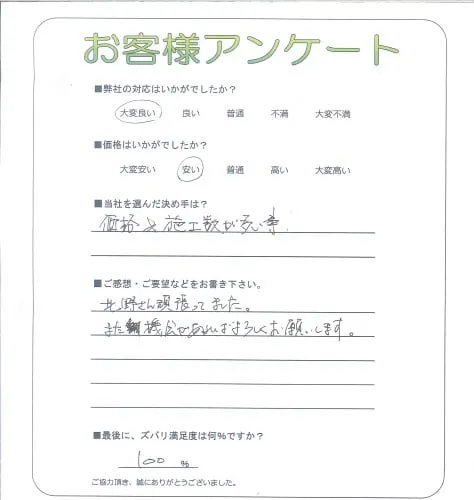 お客様アンケート
■弊社の対応はいかがでしたか?
大変良い 良い 普通 不満 大変不満
■価格はいかがでしたか?
大変安い 安い 普通 高い 大変高い
■当社を選んだ決め手は?
価格と施工数が多い事
■ご感想・ご要望などをお書き下さい。
北野さん頑張ってました。
また機会があればよろしくお願いします。
■最後に、ズバリ満足度は何%ですか?
100 %
ご協力頂き、誠にありがとうございました。